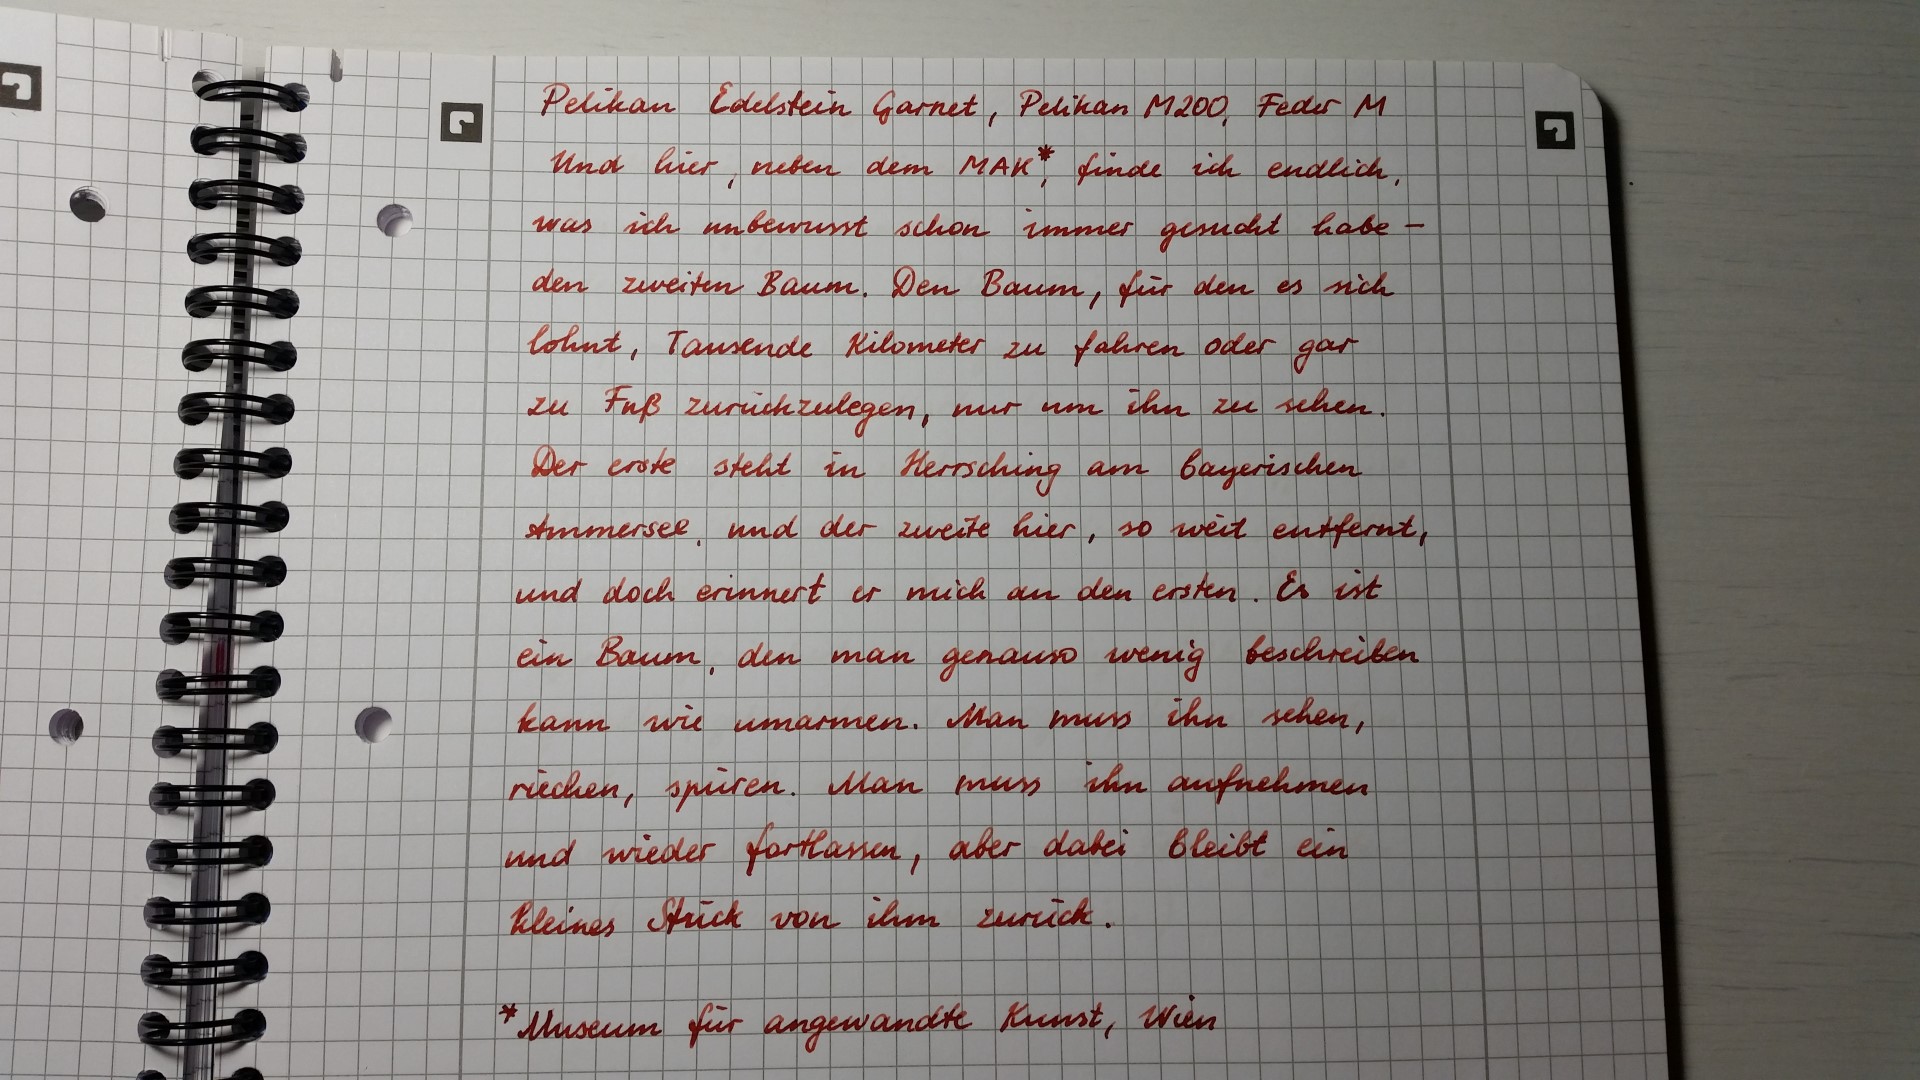 Pelikan Edelstein Garnet, Pelikan M200, Feder M
Und hier, neben dem MAK*, finde ich endlich,
was ich unbewusst schon immer gesucht habe –
den zweiten Baum. Den Baum, für den es sich
lohnt, Tausende Kilometer zu fahren oder gar
zu Fuß zurückzulegen, nur um ihn zu sehen.
Der erste steht in Herrsching am bayerischen
Ammersee, und der zweite hier, so weit entfernt,
und doch erinnert er mich an den ersten. Es ist
ein Baum, den man genauso wenig beschreiben
kann wie umarmen. Man muss ihn sehen,
riechen, spüren. Man muss ihn aufnehmen
und wieder fortlassen, aber dabei bleibt ein
kleines Stück von ihm zurück.
*Museum für angewandte Kunst, Wien